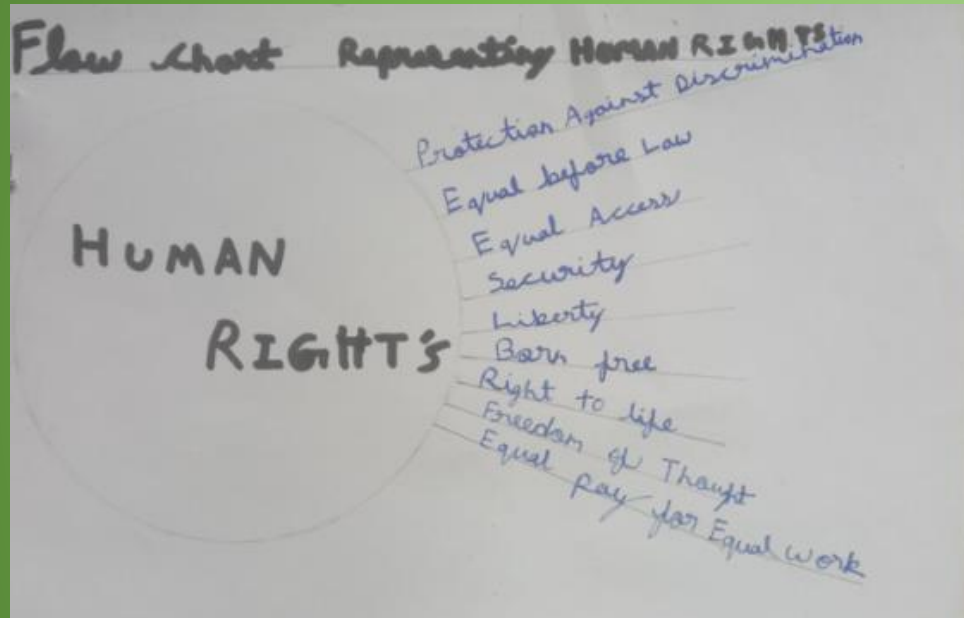 Flow Chart Representing HUMAN RIGHTS
Protection Against Discrimination
Equal before Law
Equal Access
Security
Liberty
Born free
Right to life
Freedom of Thought
Equal Pay for Equal work
HUMAN
RIGHT's